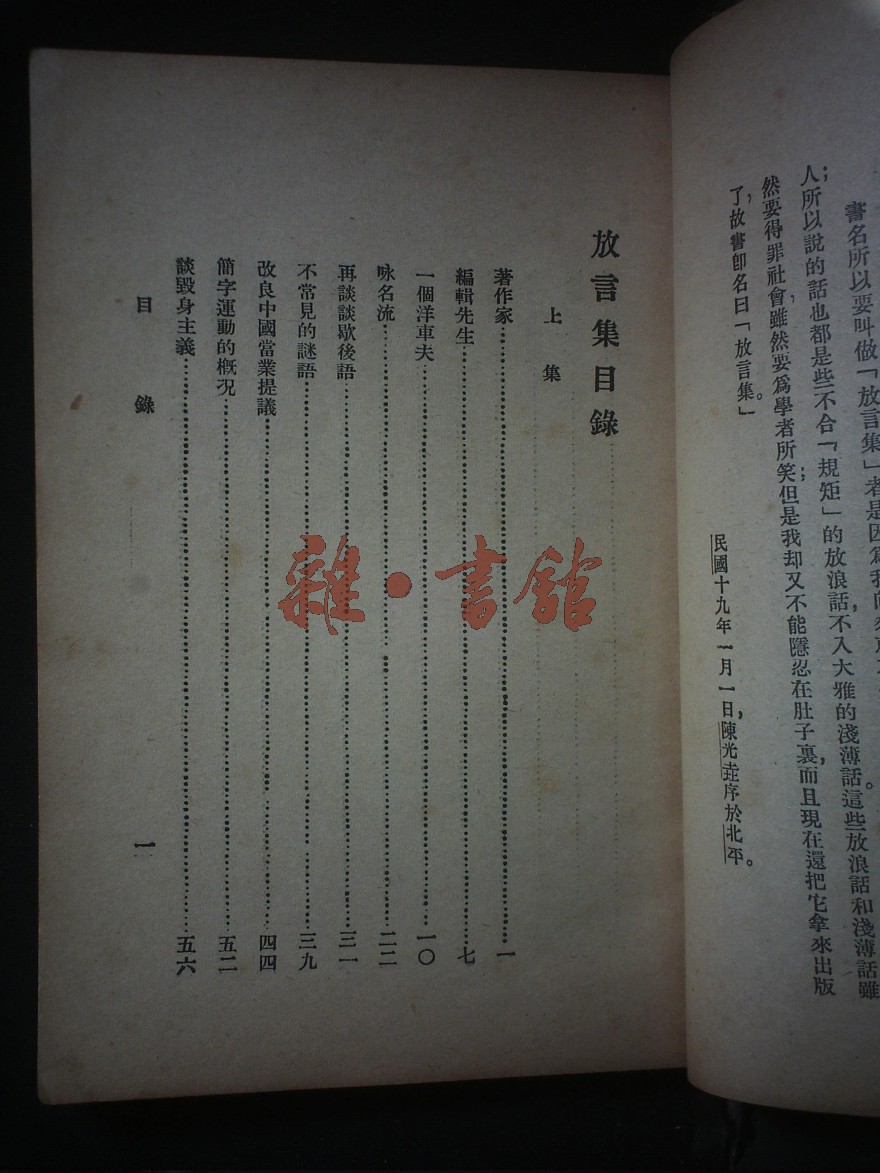 書名所以要叫做「放言集」者是因爲我
人所以說的話也都是些不合「規矩」的放浪話，不入大雅的淺薄話。這些放浪話和淺薄話雖
然要得罪社會，雖然要爲學者所笑；但是我却又不能隱忍在肚子裏，而且現在還把它拿來出版
了，故書卽名曰「放言集」。
民國十九年一月一日，陳光垚序於北平。
放言集目錄
上集
著作家………一
編輯先生………七
一個洋車夫………一〇
咏名流………二二
再談談歇後語………三一
不常見的謎語………三九
改良中國當業提議………四四
簡字運動的槪況………五二
談毀身主義………五六
目錄
一
雜·書館